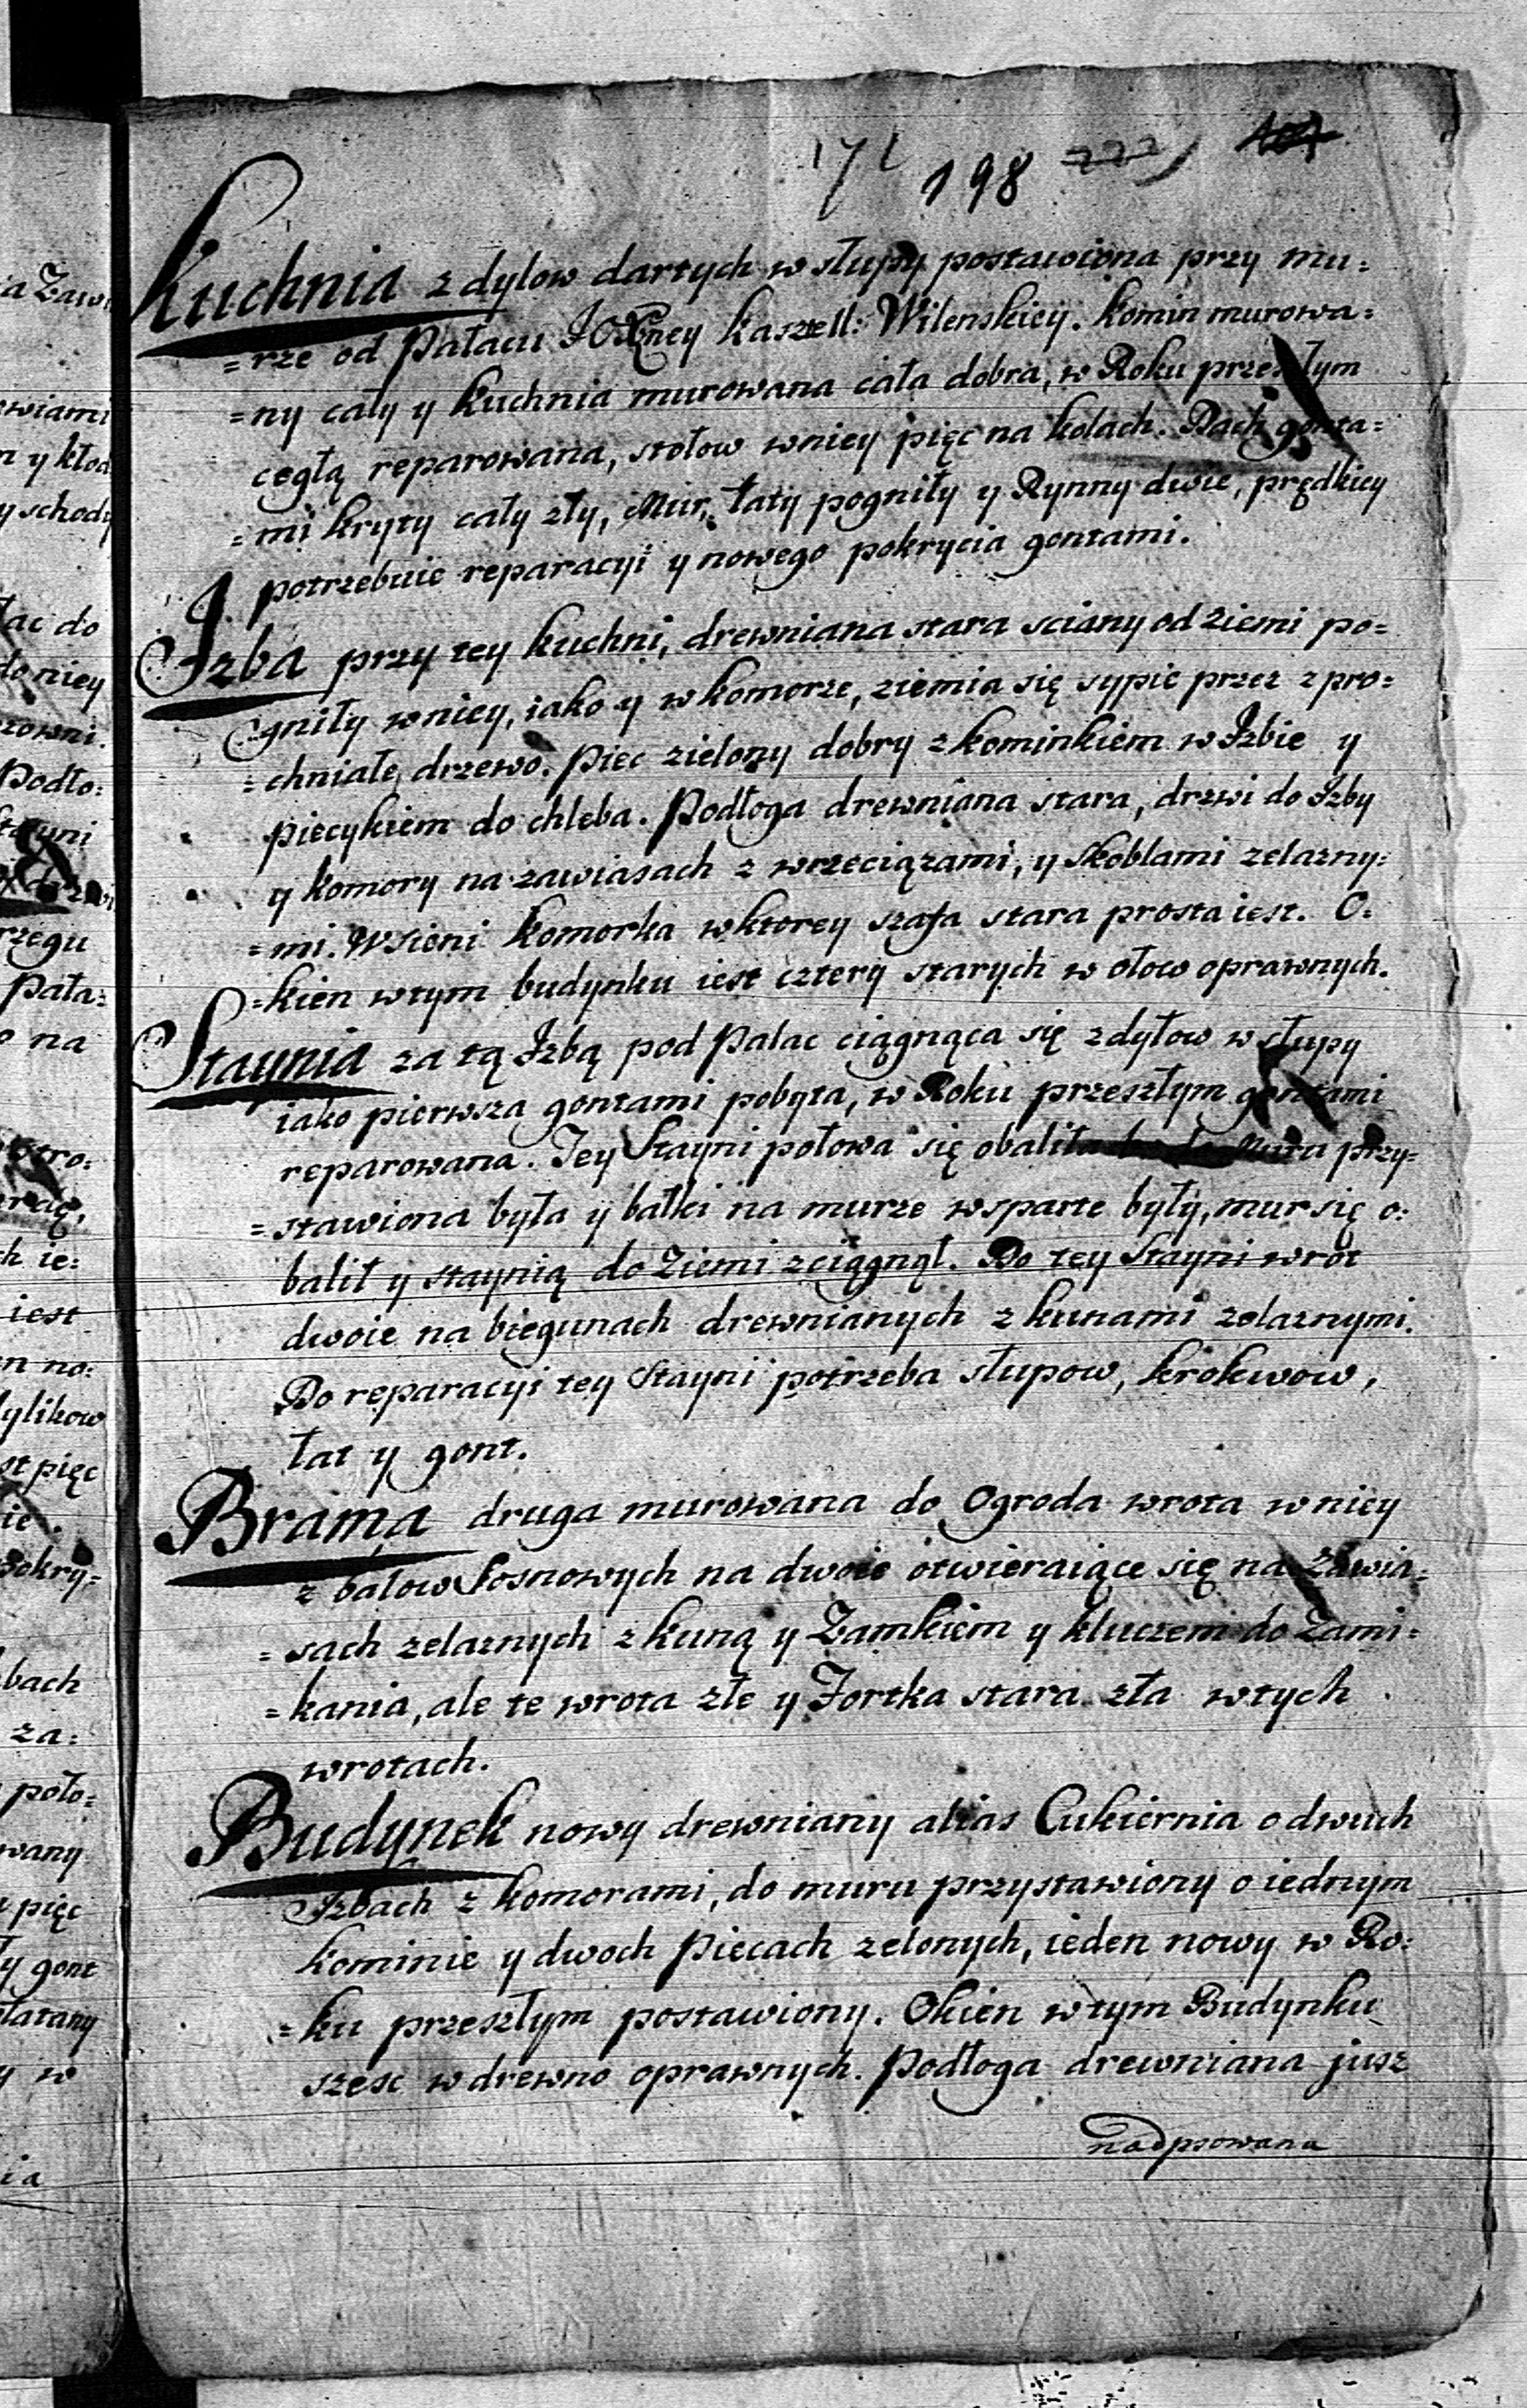 171 198 222
Kuchnia z dylow dartych w słupy postawiona przy mu:
=rze od Pałacu JOXney kasztell: Wilenskiey. komin murowa:
=ny cały y kuchnia murowana cała dobra, w Roku przeszłym
cegłą reparowana, stołow wniey pięc na kolach. Dach gonta:
=mi kryty cały zły, Mur, łaty pogniły y Rynny dwie, prędkiey
potrzebuie reparacyi y nowego pokrycia gontami.
Izba przy tey kuchni, drewniana stara sciany od ziemi po=
gniły wniey, iako y w komorze, ziemia się sypie przez z pro:
=chniałe drzewo. Piec zielony dobry z kominkiem w Izbie y
piecykiem do chleba. Podłoga drewniana stara, drzwi do Izby
y komory na zawiasach z wrzeciązami, y skoblami zelazny:
=mi. W sieni komorka wktorey szafa stara prosta iest. O:
=kien wtym budynku iest cztery starych w ołow oprawnych.
Staynia za tą Izbą pod Pałac ciągnąca się z dyłow w słupy
iako pierwsza gontami pobyta, w Roku przeszłym gontami
reparowana. Tey Stayni połowa się obaliła Mura przy=
=stawiona była y bałki na murze wsparte były, mur się o:
balił y staynią do Ziemi zciągnął. Do tey Stayni wrot
dwoie na biegunach drewnianych z kunami zelaznymi.
Do reparacyi tey Stayni potrzeba słupow, krokwow,
łat y gont.
Brama druga murowana do Ogroda wrota wniey
z balow Sosnowych na dwoie otwieraiące się na Zawia=
=sach zelaznych z kuną y Zamkiem y kluczem do Zami=
=kania, ale te wrota złe y Fortka stara zła wtych
wrotach.
Budynek nowy drewniany alias Cukiernia o dwuch
Izbach z komorami, do muru przystawiony o iednym
kominie y dwoch Piecach zelonych, ieden nowy w Ro:
=ku przeszłym postawiony. Okien wtym Budynku
szesc w drewno oprawnych. Podłoga drewniana jusz
nadpsowana